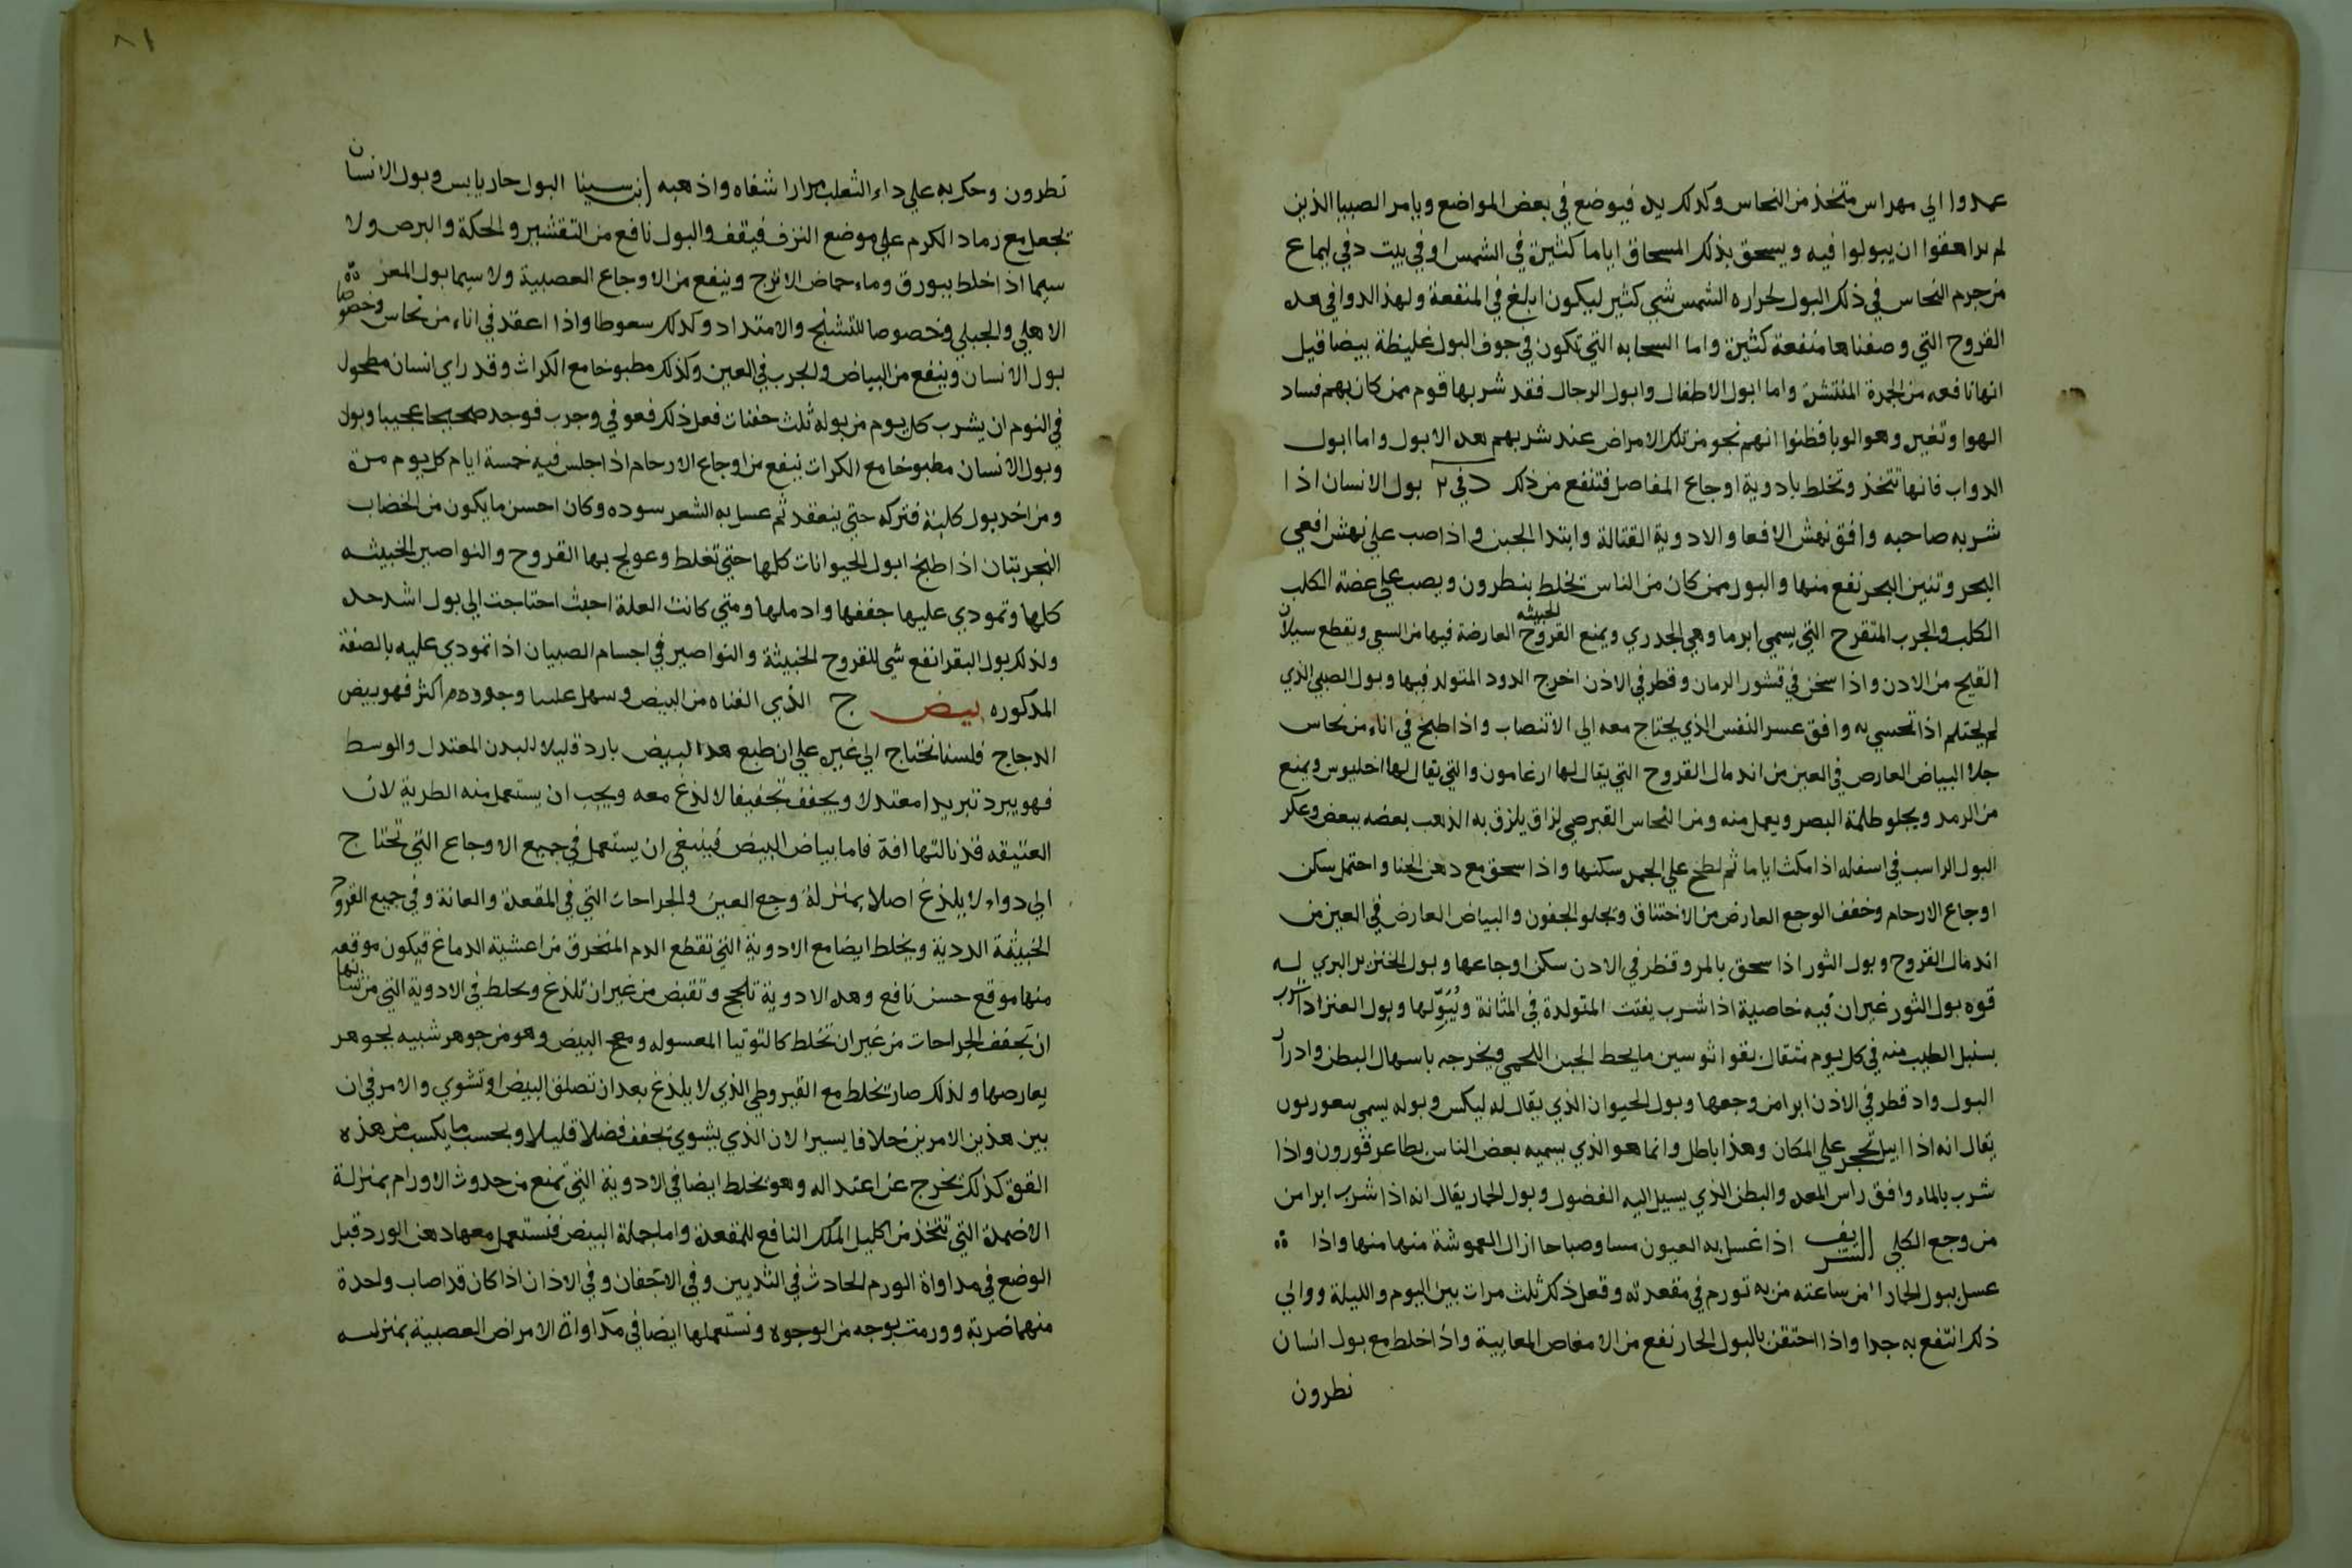 عمدوا الي مهراس متخذ من النحاس وكذلك يده فيوضع في بعض المواضع ويامر الصبيا الذين
لم يراهقوا ان يبولوا فيه ويسحق بذلك المسحاق اياما كثيرة في الشمس او في بيت دفي ليماع
من جرم النحاس في ذلك البول لحراره الشمس شي كثير ليكون ابلغ في المنفعة ولهذا الدوا في هذه
القروح التي وصفناها منفعة كثيرة واما السحابه التي تكون في جوف البول غليظة بيضا قيل
انها نافعه من الجمرة المنتشرة واما ابوال الاطفال وابوال الرجال فقد شربها قوم ممن كان بهم فساد
الهوا وتغيره وهو الوبا فظنوا انهم نجو من تلك الامراض عند شربهم هذه الابوال واما ابوال
الدواب فانها تتخذ وتخلط بادوية اوجاع المفاصل فتنفع من ذلك د في ٢ بول الانسان اذا
شربه صاحبه وافق نهش الافعا والادوية القتالة وابتدا الجبن واذا صب علي نهش افعي
البحر وتنين البحر نفع منها والبول ممن كان من الناس تخلط بنطرون ويصب علي عضة الكلب
الكلب والجرب المتقرح التي يسمي ابرما وهي الجدري ويمنع القروح الخبيثه العارضة فيها من السعي ويقطع سيلان
القيح من الاذن واذا سخن في قشور الرمان وقطر في الاذن اخرج الدود المتولد فيها وبول الصبي الذي
لم يحتلم اذا تحسي به وافق عسر النفس الذي يحتاج معه الي الانتصاب واذا طبخ في اناء من نحاس
جلا البياض العارض في العين من اندمال القروح التي يقال لها ارغامون والتي يقال لها اخليوس ويمنع
من الرمد ويجلو ظلمة البصر ويعمل منه ومن النحاس القبرصي لزاق يلزق به الذهب بعضه ببعض وعكر
البول الراسب في اسفله اذا مكث اياما ثم لطخ علي الجمرة سكنها واذا سحق مع دهن الحنا واحتمل سكن
اوجاع الارحام وخفف الوجع العارض من الاختناق ويجلو الجفون والبياض العارض في العين من
اندمال القروح وبول الثور اذا سحق بالمر وقطر في الاذن سكن اوجاعها وبول الخنزير البري له
قوه بول الثور غير ان فيه خاصية اذا شرب يفتت المتولدة في المثانة ويُبَوِّلها وبول العنز اذا شرب
بسنبل الطيب منه في كل يوم مثقال بقواثوسين ما يحط الجبن اللحمي ويخرجه باسهال البطن وادرار
البول واذ قطر في الاذن ابرا من وجعها وبول الحيوان الذي يقال له ليكس وبوله يسمي
يقال انه اذا ابيل تحجر علي المكان وهذا باطل وانما هو الذي يسميه بعض الناس بطاعرقورون واذا
شرب بالماء وافق راس المعده والبطن الذي يسيل اليه الفضول وبول الحمار يقال انه اذا شرب ابرا من
من وجع الكلي الشريف اذا غسل به العيون مسا وصباحا ازال العموشة منها منها واذا
عسل ببول الحمار من ساعته من به تورم في مقعدته وفعل ذلك ثلث مرات بين اليوم والليلة ووالي
ذلك انتفع به جدا واذا احتقن بالبول الحار نفع من الامغاص المعايية واذا خلط مع بول انسان
نطرون
٨١
نطرون وحك به علي داء الثعلب مرارا شفاه واذهبه ابن سينا البول حار يابس وبول الانسان
تجعل مع رماد الكرم علي موضع النزف فيقف والبول نافع من التقشير والحكة والبرص ولا
سيما اذا خلط ببورق وماء حماض الاترج وينفع من الاوجاع العصبية ولا سيما بول المعز
الاهلي والجبلي وخصوصا للتشنج والامتداد وكذلك سعوطا واذا اعقد في اناء من نحاس وخصوصا
بول الانسان وينفع من البياض والجرب في العين وكذلك مطبوخا مع الكراث وقد راي انسان مطحول
في النوم ان يشرب كل يوم من بوله ثلث حفنات فعل ذلك فعوفي وجرب فوجد صحيحا عجيبا وبول
وبول الانسان مطبوخا مع الكراث ينفع من اوجاع الارحام اذا جلس فيه خمسة ايام كل يوم مرة
ومن اخذ بول كلبة فتركه حتي ينعقد ثم عسل به الشعر سوده وكان احسن ما يكون من الخضاب
التجربتان اذا طبخ ابوال الحيوانات كلها حتي تغلظ وعولج بها القروح والنواصير الخبيثه
كلها وتمودي عليها جففها وادملها ومتي كانت العلة اخبث احتاجت الي بول اشد حده
ولذلك بول البقر انفع شي للقروح الخبيثة والنواصير في اجسام الصبيان اذا تمودي عليه بالصفة
المذكوره بيض ج الذي الفناه من البيض وسهل علينا وجوده اكثر فهو بيض
الدجاج فلسنا نحتاج الي غيره علي ان طبع هذا البيض بارد قليلا للبدن المعتدل والوسط
فهو يبرد تبريدا معتدلا ويجفف تجفيفا لا لذع معه ويجب ان يستعمل منه الطرية لان
العتيقه قد نالتها افة فاما بياض البيض فينبغي ان يستعمل في جميع الاوجاع التي تحتاج
الي دواء لا يلذغ اصلا بمنزلة وجع العين والجراحات التي في المقعدة والعانة وفي جميع القروح
الخبيثة الردية ويخلط ايضا مع الادوية التي تقطع الدم المنخرق من اغشية الدماغ فيكون موقعه
منها موقع حسن نافع وهذه الادوية تلحج وتقبض من غير ان تلذغ ويخلط في الادوية التي من شانها
ان تجفف الجراحات من غير ان تخلط كالتوتيا المغسوله ومح البيض وهو من جوهر شبيه بجوهر
بعارضها ولذلك صار تخلط مع القيروطي الذي لا يلذغ بعد ان تصلق البيض او تشوي والامر في ان
بين هذين الامرين خلافا يسيرا لان الذي يشوي يجفف فضلا قليلا وبحسب ما يكسب من هذه
القوة كذلك يخرج عن اعتداله وهو يخلط ايضا في الادوية التي تمنع من حدوث الاورام بمنزلة
الاضمدة التي تتخذ من اكليل الملك النافع للمقعدة واما جملة البيض فنستعمل معها دهن الورد قبل
الوضع في مداواة الورم الحادث في الثديين وفي الاجفان وفي الاذان اذا كان قد اصاب واحدة
منهما ضربة وورمت بوجه من الوجوه ونستعملها ايضا في مداواة الامراض العصبية بمنزلة